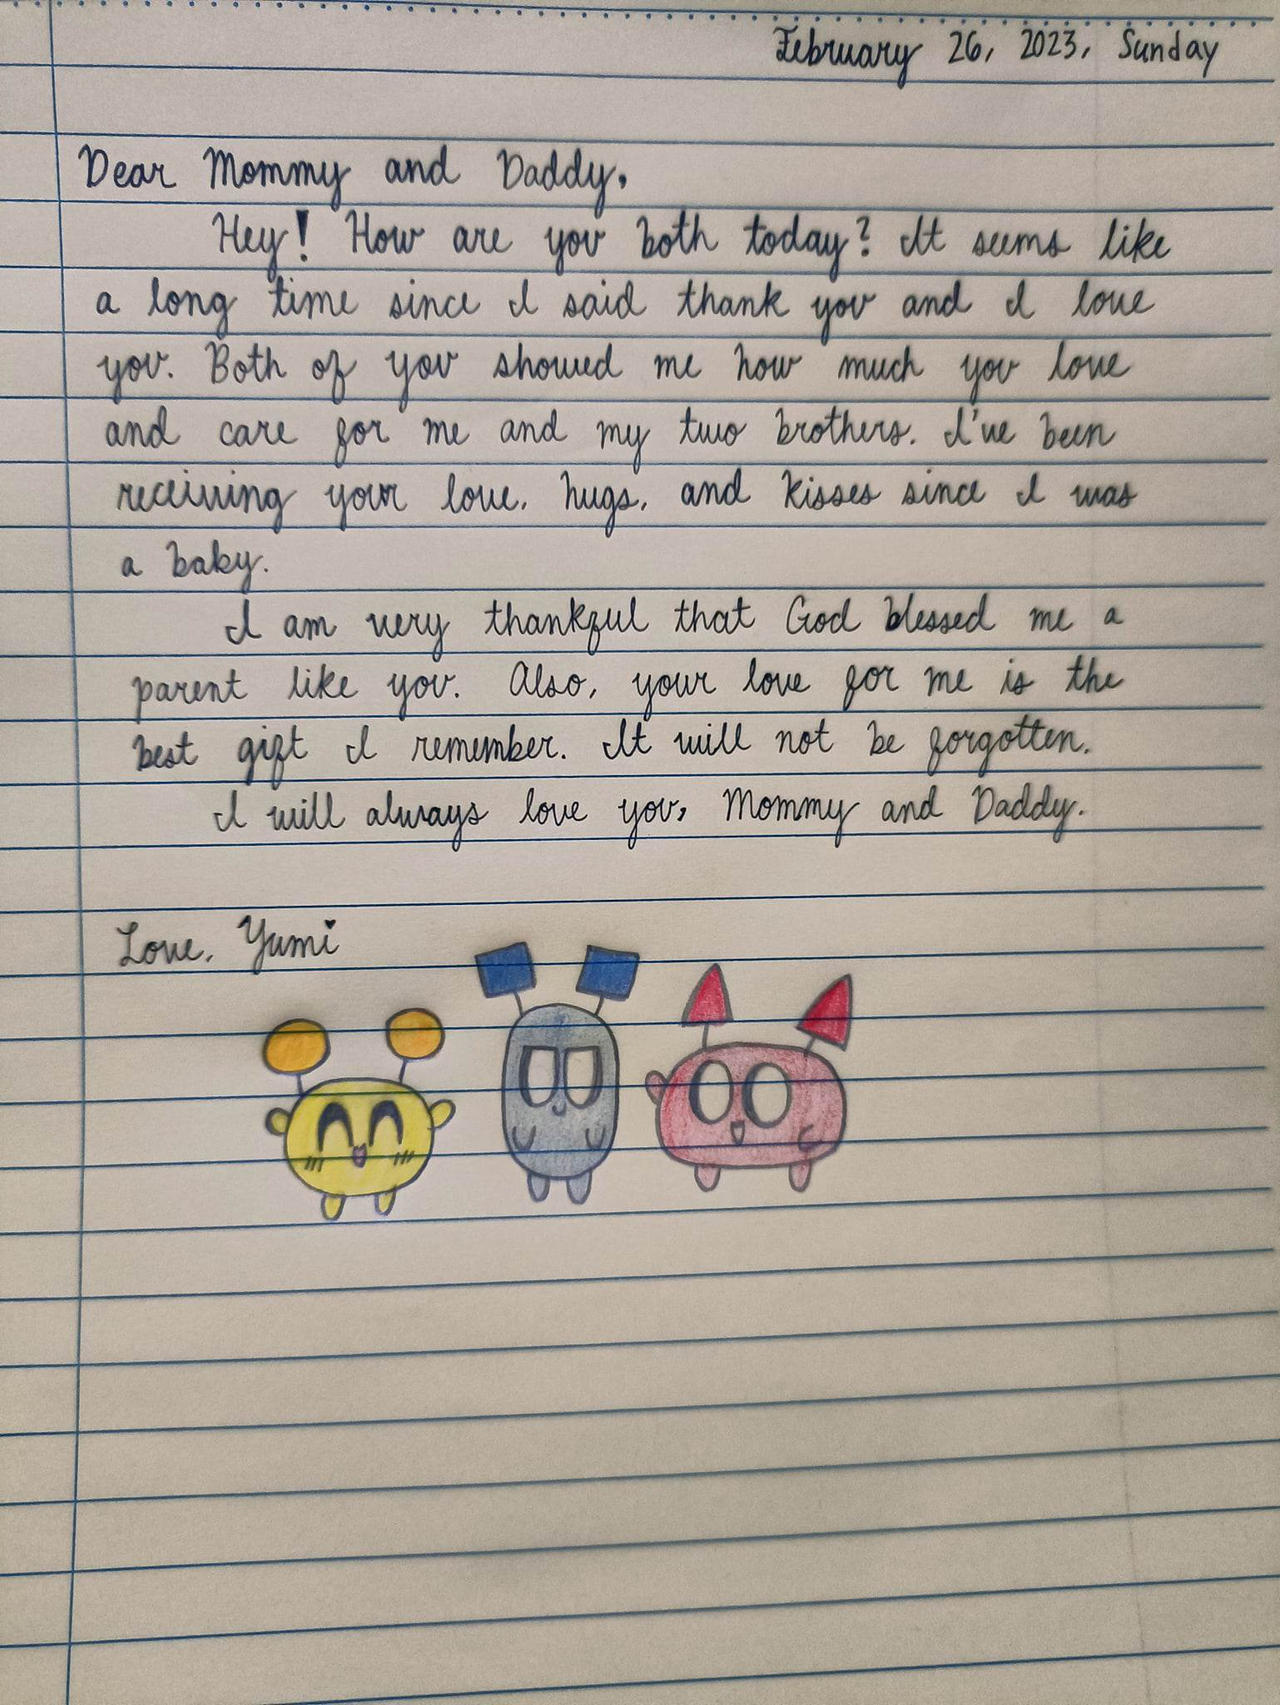 February 26, 2023, Sunday
Dear Mommy and Daddy,
Hey! How are you both today? It seems like
a long time since I said thank you and I love
you. Both of you showed me how much you love
and care for me and my two brothers. I've been
receiving your love, hugs, and kisses since I was
a baby.
I am very thankful that God blessed me a
parent like you. Also, your love for me is the
best gift I remember. It will not be forgotten.
I will always love you, Mommy and Daddy.
Love, Yumi